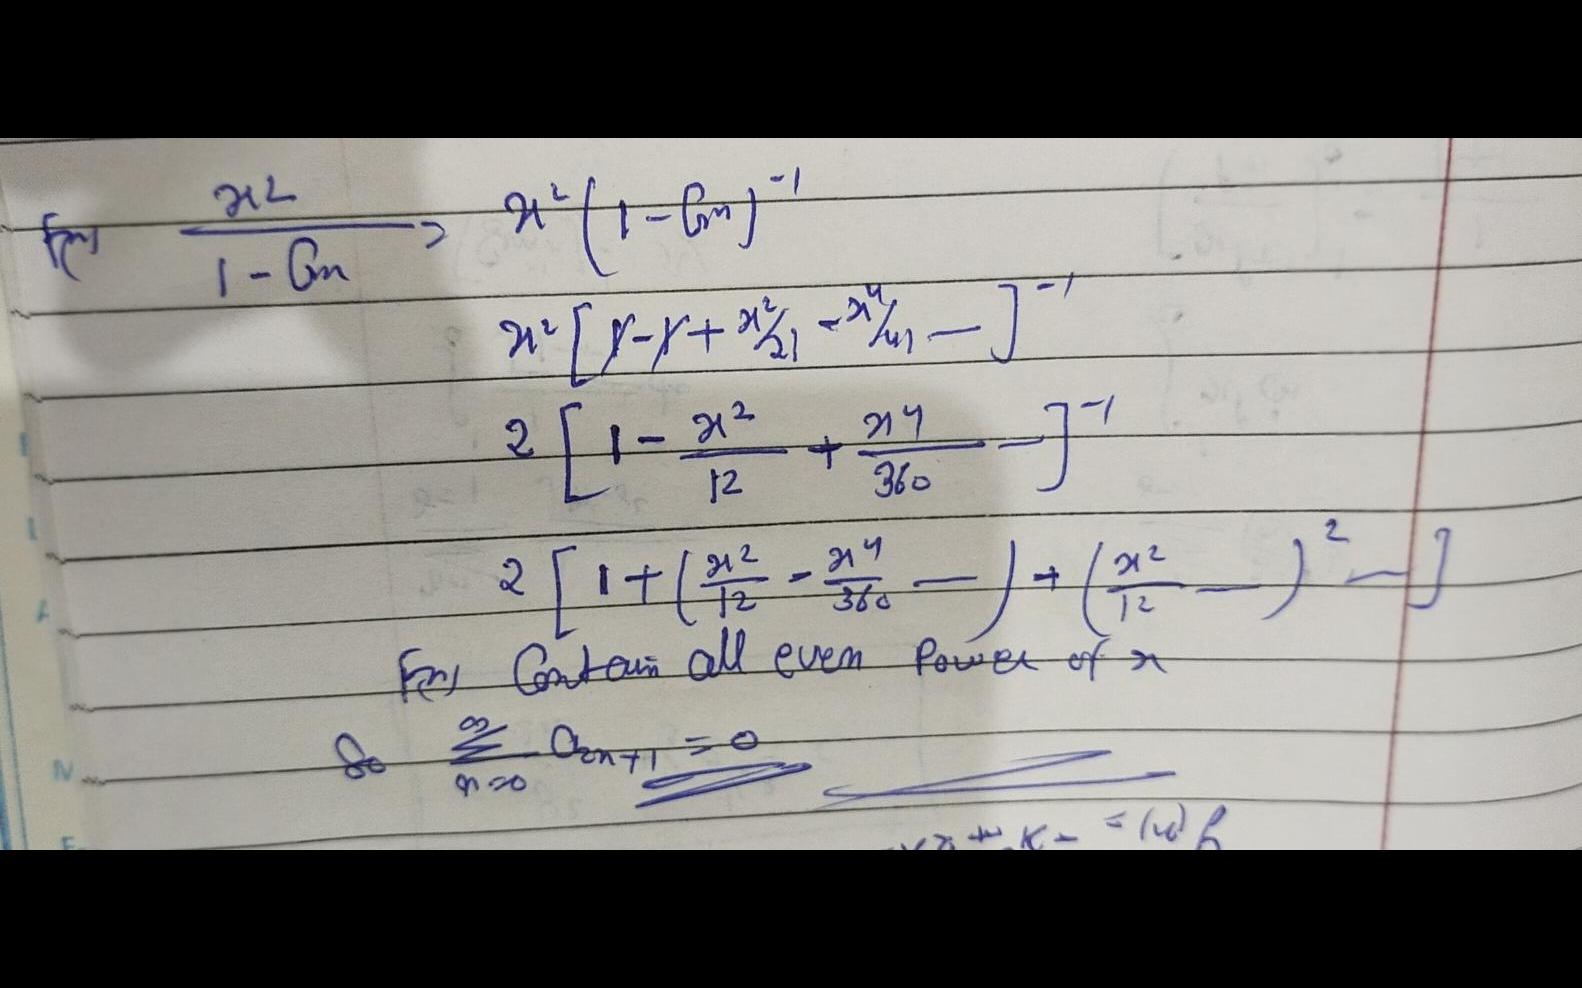 F(x) x²/(1 - Cosx) = x² (1 - Cosx)⁻¹
x² [1 - 1 + x²/2! - x⁴/4! —]⁻¹
2 [1 - x²/12 + x⁴/360 — —]⁻¹
2 [1 + (x²/12 - x⁴/360 —) + (x²/12 —)² —]
F(x) Contain all even Power of x
So ∑_{n=0}^{∞} a_{2n+1} = 0